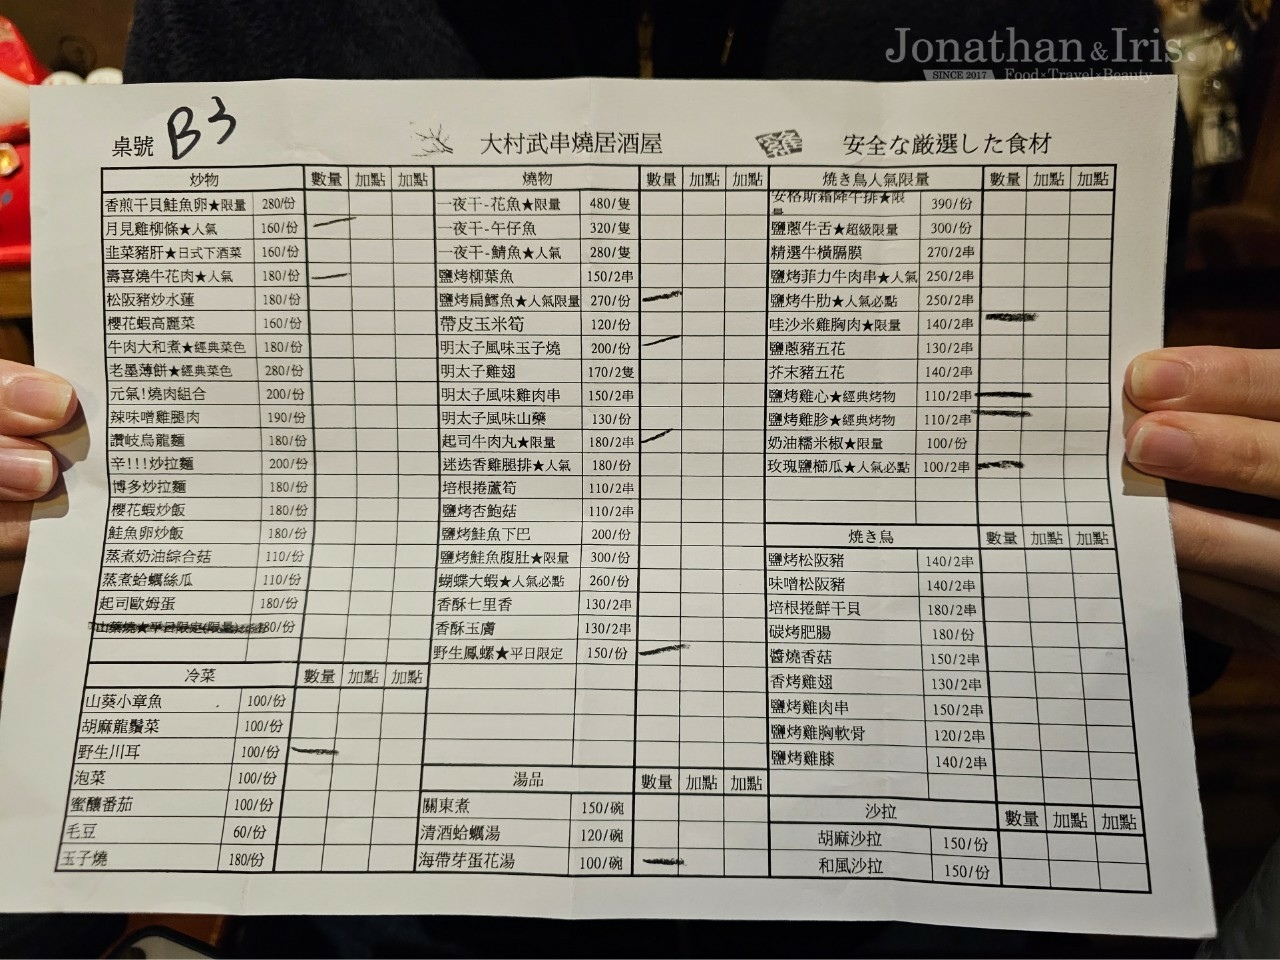 Jonathan & Iris.
SINCE 2017 Food×Travel×Beauty
桌號 B3 大村武串燒居酒屋 安全な厳選した食材
炒物 數量 加點 加點
香煎干貝鮭魚卵★限量 280/份
月見雞柳條★人氣 160/份
韭菜豬肝★日式下酒菜 160/份
壽喜燒牛花肉★人氣 180/份
松阪豬炒水蓮 180/份
櫻花蝦高麗菜 160/份
牛肉大和煮★經典菜色 180/份
老墨薄餅★經典菜色 280/份
元氣!燒肉組合 200/份
辣味噌雞腿肉 190/份
讚岐烏龍麵 180/份
辛!!!炒拉麵 200/份
博多炒拉麵 180/份
櫻花蝦炒飯 180/份
鮭魚卵炒飯 180/份
蒸煮奶油綜合菇 110/份
蒸煮蛤蠣絲瓜 110/份
起司歐姆蛋 180/份
山藥燒★平日限定(限量) 180/份
冷菜 數量 加點 加點
山葵小章魚 100/份
胡麻龍鬚菜 100/份
野生川耳 100/份
泡菜 100/份
蜜釀番茄 100/份
毛豆 60/份
玉子燒 180/份
燒物 數量 加點 加點
一夜干-花魚★限量 480/隻
一夜干-午仔魚 320/隻
一夜干-鯖魚★人氣 280/隻
鹽烤柳葉魚 150/2串
鹽烤扁鱈魚★人氣限量 270/份
帶皮玉米筍 120/份
明太子風味玉子燒 200/份
明太子雞翅 170/2隻
明太子風味雞肉串 150/2串
明太子風味山藥 130/份
起司牛肉丸★限量 180/2串
迷迭香雞腿排★人氣 180/份
培根捲蘆筍 110/2串
鹽烤杏鮑菇 110/2串
鹽烤鮭魚下巴 200/份
鹽烤鮭魚腹肚★限量 300/份
蝴蝶大蝦★人氣必點 260/份
香酥七里香 130/2串
香酥玉膚 130/2串
野生鳳螺★平日限定 150/份
湯品 數量 加點 加點
關東煮 150/碗
清酒蛤蠣湯 120/碗
海帶芽蛋花湯 100/碗
焼き鳥人氣限量 數量 加點 加點
安格斯霜降牛排★限量 390/份
鹽蔥牛舌★超級限量 300/份
精選牛橫膈膜 270/2串
鹽烤菲力牛肉串★人氣 250/2串
鹽烤牛肋★人氣必點 250/2串
哇沙米雞胸肉★限量 140/2串
鹽蔥豬五花 130/2串
芥末豬五花 140/2串
鹽烤雞心★經典烤物 110/2串
鹽烤雞胗★經典烤物 110/2串
奶油糯米椒★限量 100/份
玫瑰鹽櫛瓜★人氣必點 100/2串
焼き鳥 數量 加點 加點
鹽烤松阪豬 140/2串
味噌松阪豬 140/2串
培根捲鮮干貝 180/2串
碳烤肥腸 180/份
醬燒香菇 150/2串
香烤雞翅 130/2串
鹽烤雞肉串 150/2串
鹽烤雞胸軟骨 120/2串
鹽烤雞膝 140/2串
沙拉 數量 加點 加點
胡麻沙拉 150/份
和風沙拉 150/份